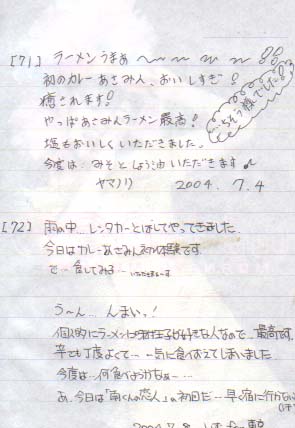 [71] ラーメンうまぁ〜〜〜〜〜!!
初のカレーあさみん、おいしすぎ!
癒されます!
ごちそう様でした!
やっぱあさみんラーメン最高!
塩もおいしくいただきました。
今度は みそとしょう油 いただきます♪
ヤマノリ 2004. 7. 4
[72] 雨の中…レンタカーとばしてやってきました
今日はカレーあさみん初体験です
で…食してみる… いただきまーす
う〜ん… んまいっ!
個人的にラーメンは 好きな人なので…最高です。
辛さも丁度よくて…一気に食べおえてしまいました
今度は…何食べようかなぁ…
あ、今日は「雨くんの恋人」の初回だ…早く宿に行かない
2004. 7. 8